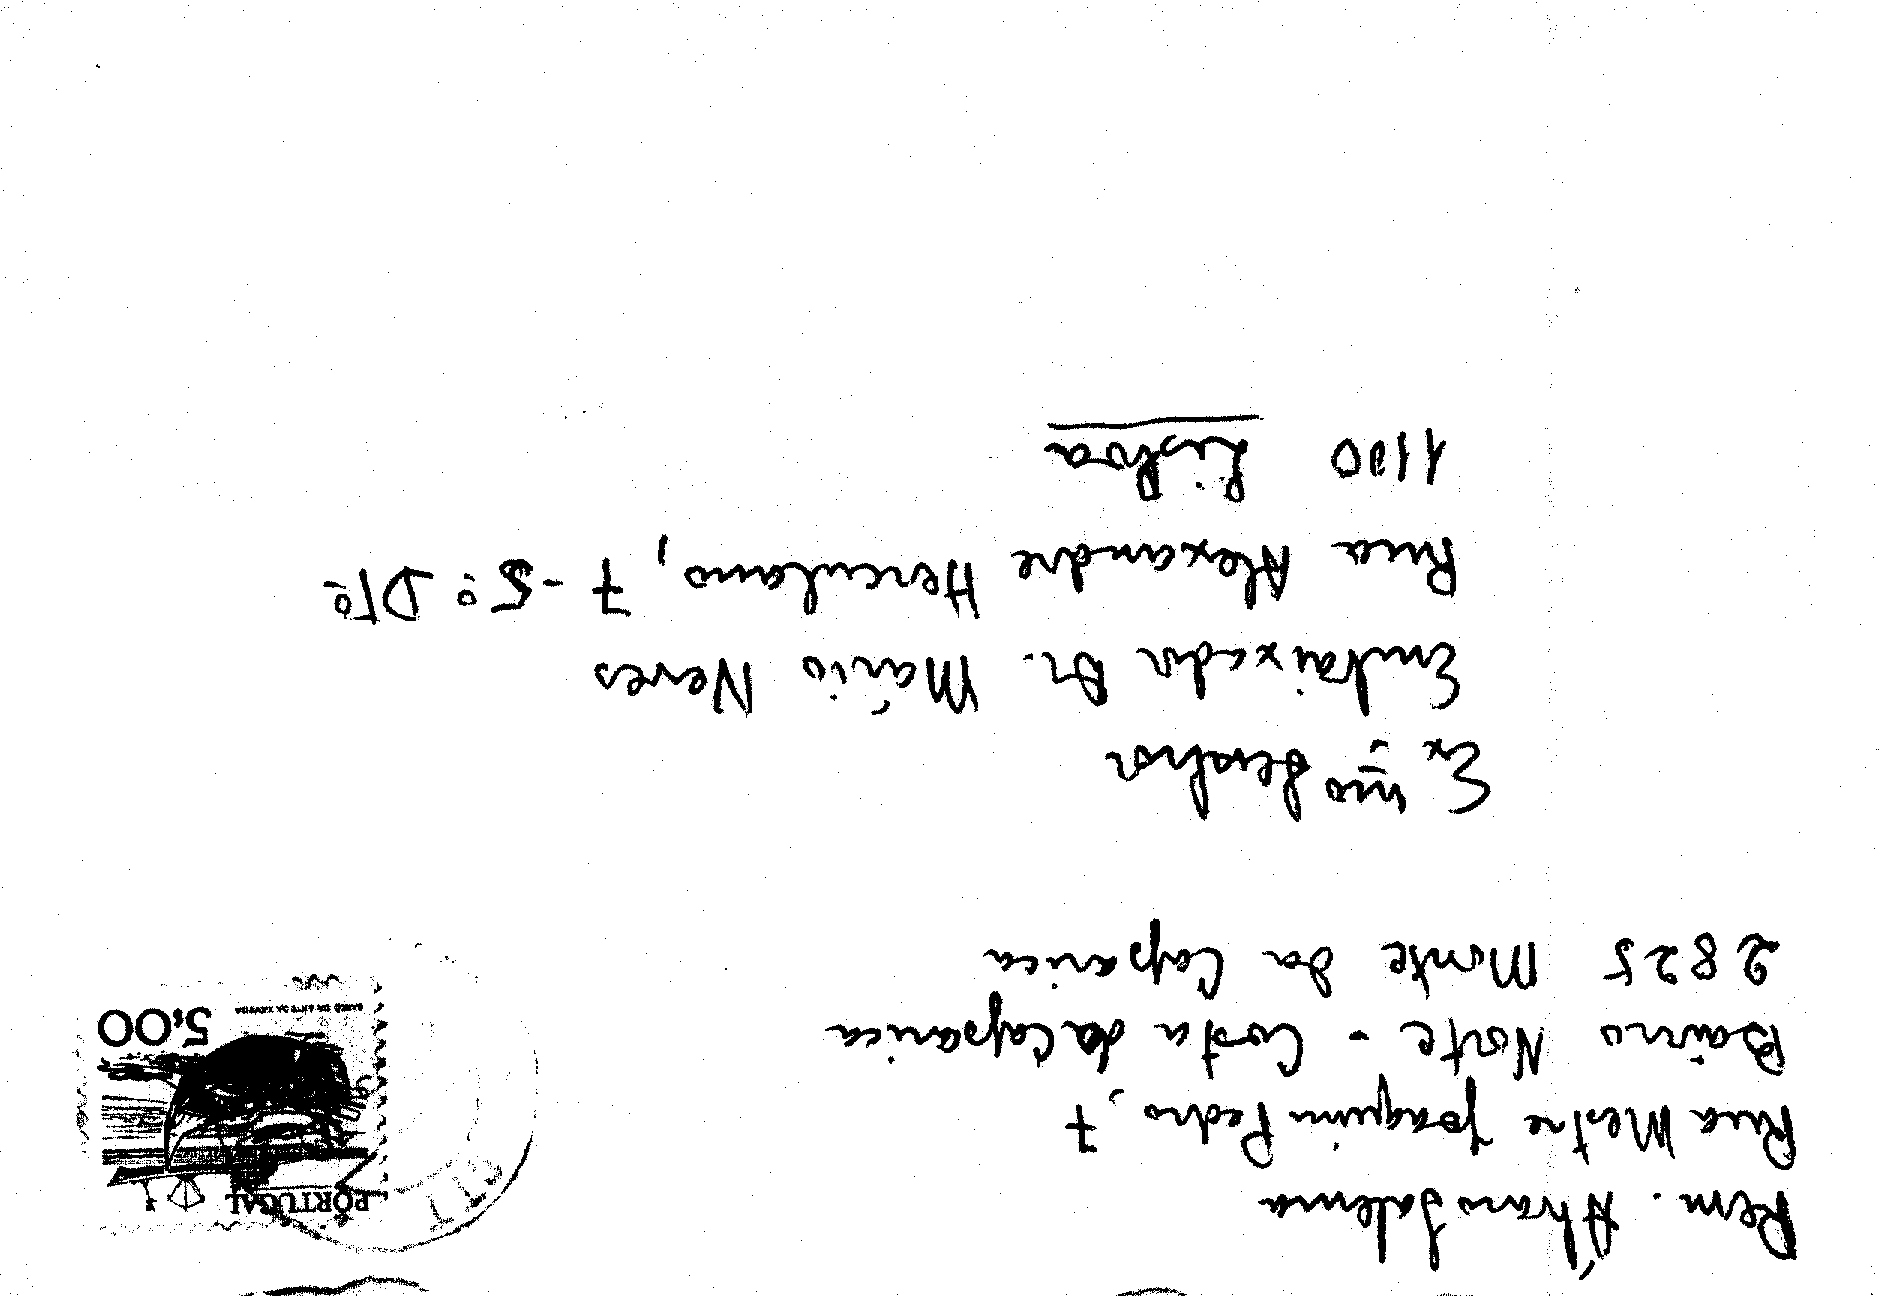 Rem. Álvaro Salema
Rua Mestre Joaquim Pedro, 7
Bairro Norte - Costa da Caparica
2825 Monte da Caparica
PORTUGAL
5,00
CTT
Ex.mo Senhor
Embaixador Dr. Mário Neves
Rua Alexandre Herculano, 7 - 5.º DTº
1100 Lisboa